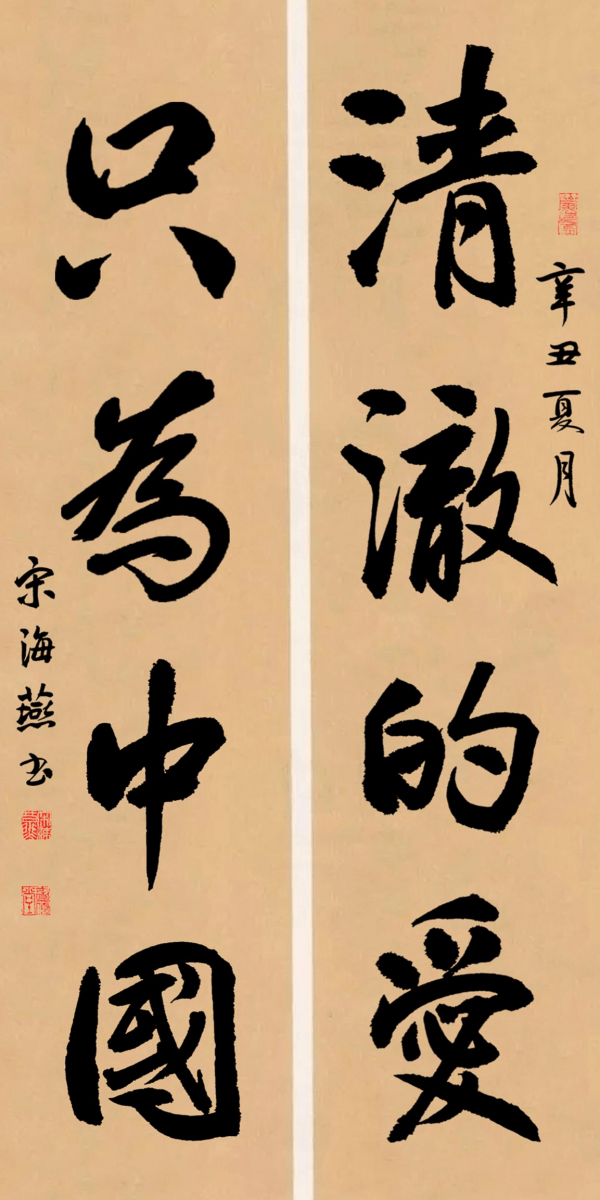 辛丑夏月
清澈的愛
只為中國
宋海燕书